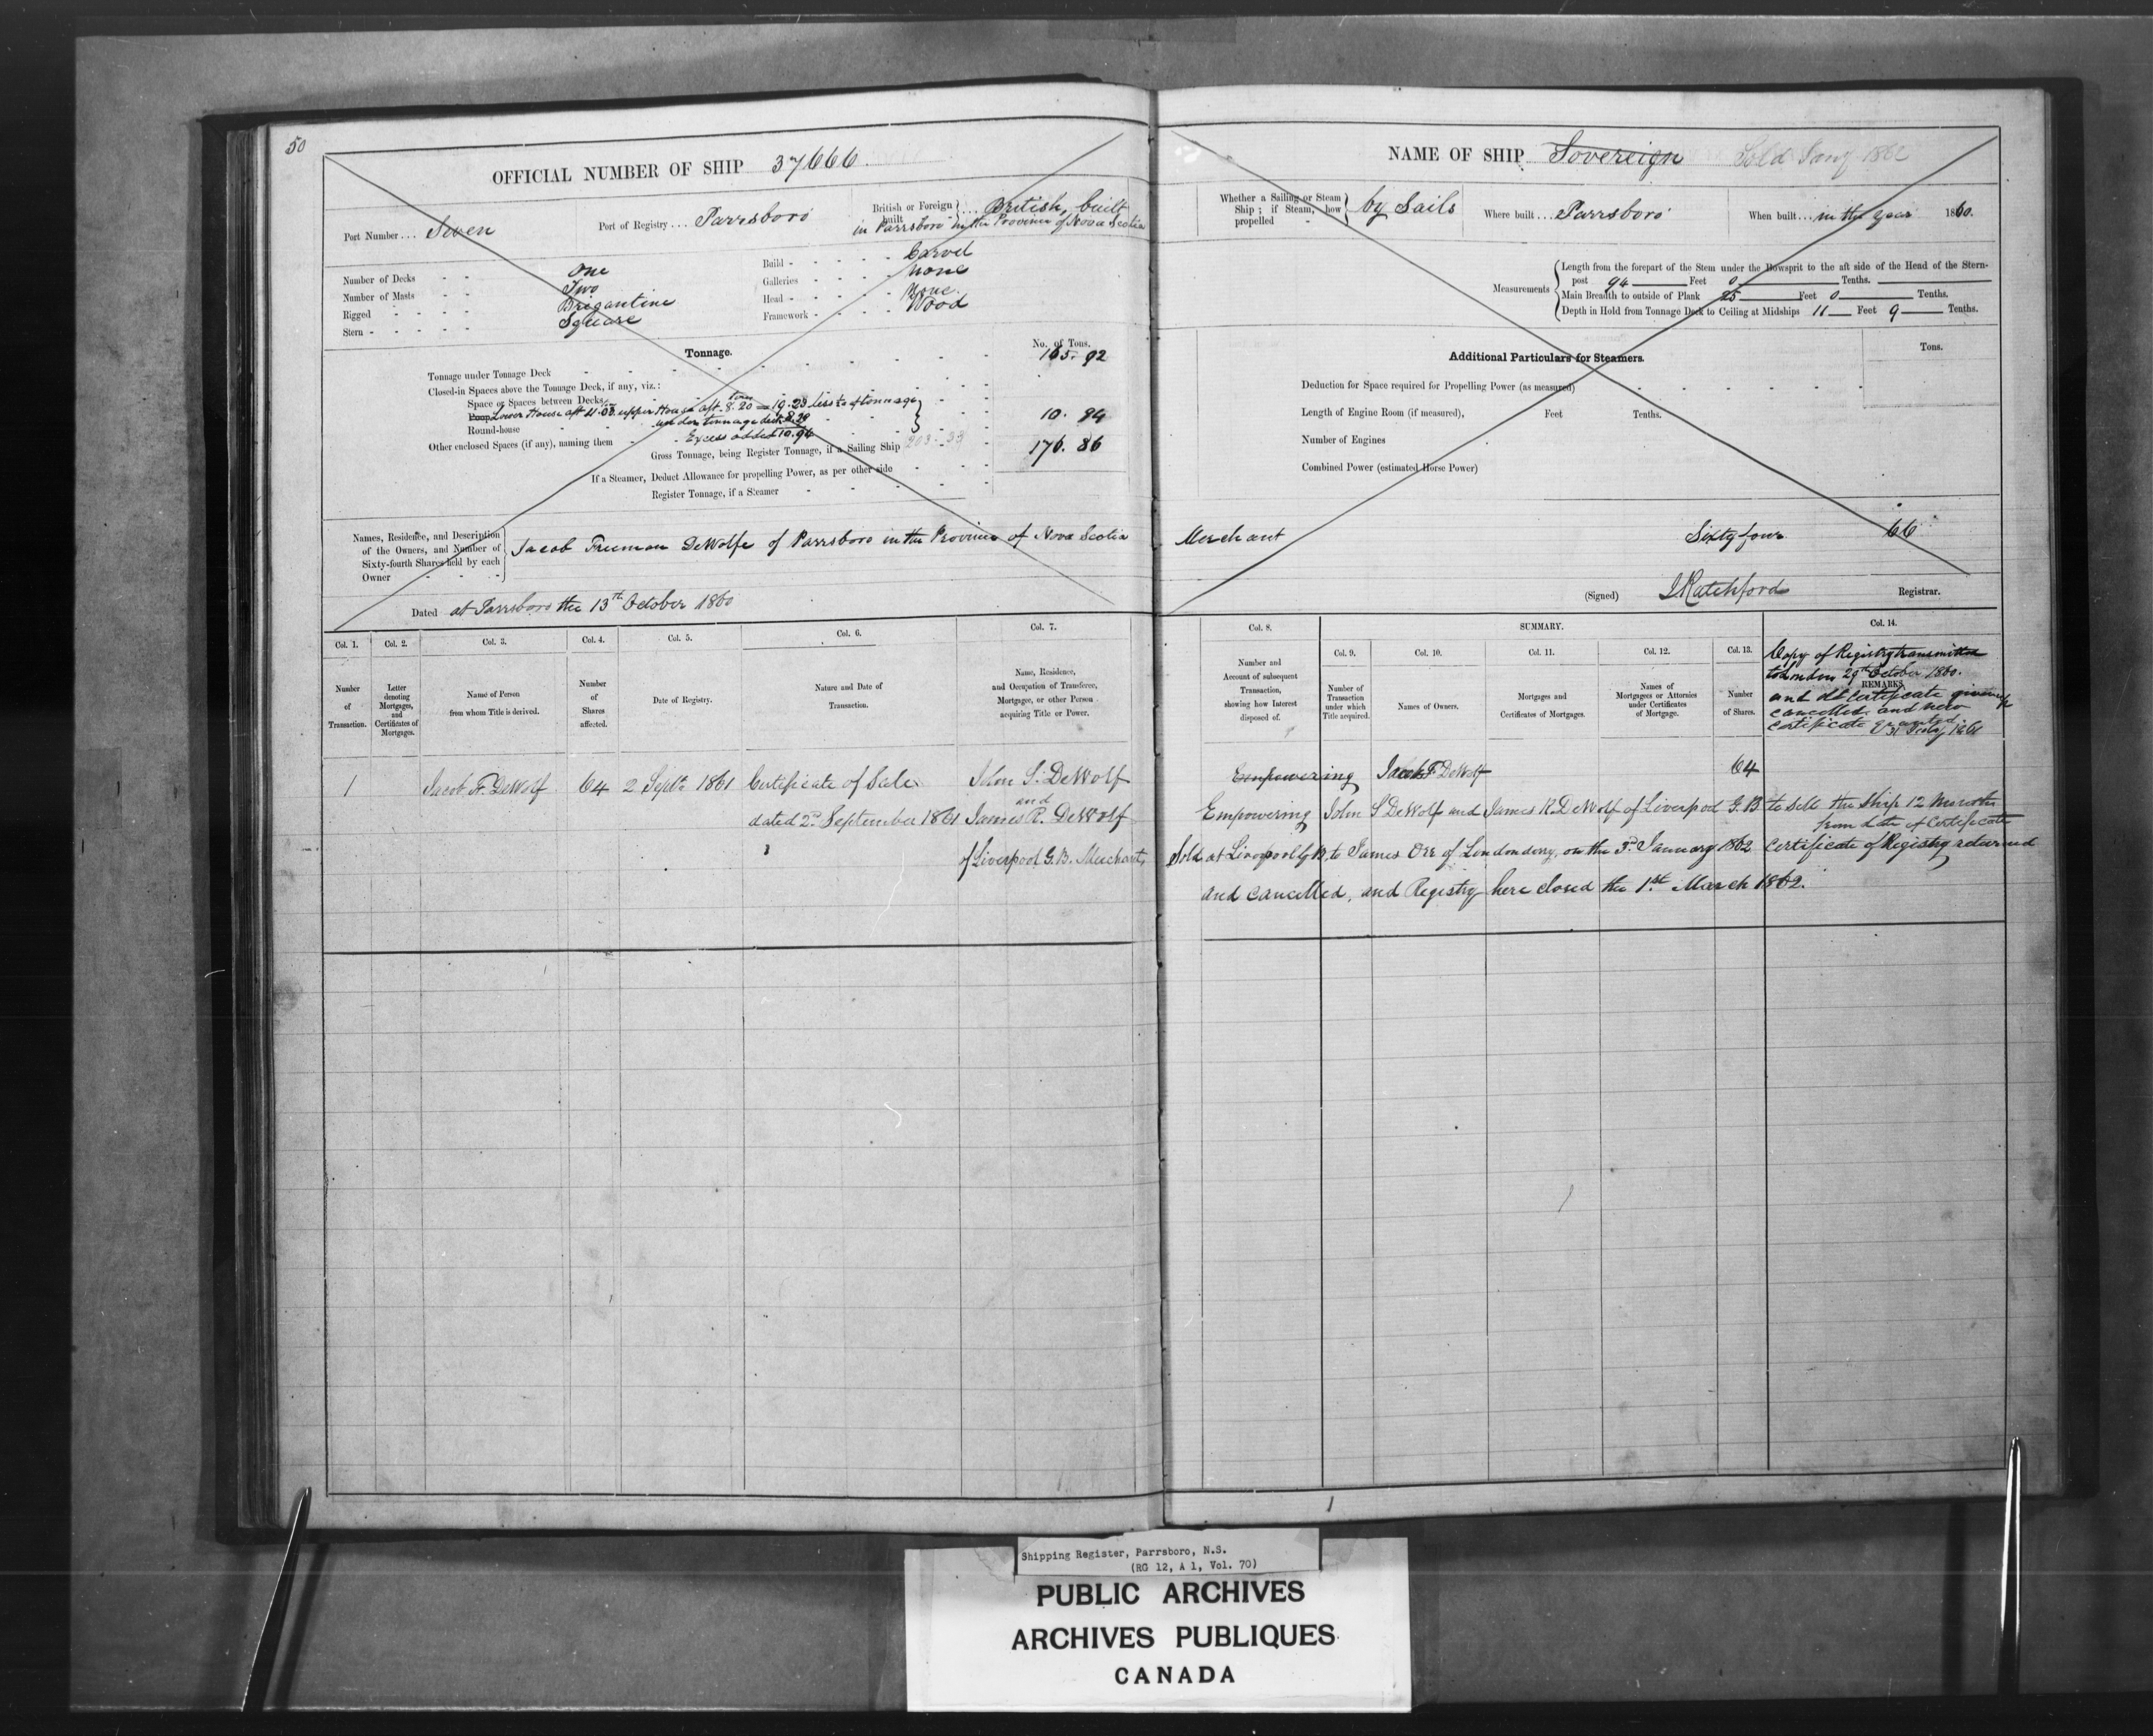 50
OFFICIAL NUMBER OF SHIP 37666
Port Number ... Seven
Port of Registry ... Parrsboro
British or Foreign built } ... British, built
in Parrsboro in the Province of Nova Scotia
Number of Decks - - One
Number of Masts - - Two
Rigged - - - - Brigantine
Stern - - - - Square
Build - - - - - Carvel
Galleries - - - - None
Head - - - - - None.
Framework - - - - Wood
Tonnage.
No. of Tons.
Tonnage under Tonnage Deck 165. 92
Closed-in Spaces above the Tonnage Deck, if any, viz.:
Space or Spaces between Decks
Poop Lower House aft 11.03 upper House aft. 8.20 = 19.23 less 5% of tonnage
Round-house under tonnage deck 8.29 10. 94
Other enclosed Spaces (if any), naming them - Excess added 10.94
Gross Tonnage, being Register Tonnage, if a Sailing Ship 203. 33 176. 86
If a Steamer, Deduct Allowance for propelling Power, as per other side
Register Tonnage, if a Steamer
Names, Residence, and Description of the Owners, and Number of Sixty-fourth Shares held by each Owner } Jacob Freeman DeWolfe of Parrsboro in the Province of Nova Scotia
Dated at Parrsboro the 13th October 1860
Col. 1. Col. 2. Col. 3. Col. 4. Col. 5. Col. 6. Col. 7.
Number of Transaction.
Letter denoting Mortgages, and Certificates of Mortgages.
Name of Person from whom Title is derived.
Number of Shares affected.
Date of Registry.
Nature and Date of Transaction.
Name, Residence, and Occupation of Transferee, Mortgagee, or other Person acquiring Title or Power.
1 Jacob F. DeWolf 64 2 Septr 1861 Certificate of Sale John S. DeWolf
and
dated 2nd September 1861 James R. DeWolf
of Liverpool G.B. Merchants
NAME OF SHIP Sovereign Sold Jany 1862
Whether a Sailing or Steam Ship; if Steam, how propelled } by Sails
Where built ... Parrsboro
When built ... in the year 1860.
Measurements
Length from the forepart of the Stem under the Bowsprit to the aft side of the Head of the Stern-
post 94 Feet 0 Tenths.
Main Breadth to outside of Plank 25 Feet 0 Tenths.
Depth in Hold from Tonnage Deck to Ceiling at Midships 11 Feet 9 Tenths.
Additional Particulars for Steamers.
Tons.
Deduction for Space required for Propelling Power (as measured)
Length of Engine Room (if measured), Feet Tenths.
Number of Engines
Combined Power (estimated Horse Power)
Merchant Sixty four 66
(Signed) J Ratchford Registrar.
Col. 8. SUMMARY. Col. 14.
Col. 9. Col. 10. Col. 11. Col. 12. Col. 13.
Number and Account of subsequent Transaction, showing how Interest disposed of.
Number of Transaction under which Title acquired.
Names of Owners.
Mortgages and Certificates of Mortgages.
Names of Mortgagees or Attornies under Certificates of Mortgage.
Number of Shares.
Copy of Registry transmitted
to London 29th October 1860.
REMARKS.
and old Certificate given up
cancelled and new
certificate granted
1861
Empowering Jacob F. DeWolf 64
Empowering John S DeWolf and James R. DeWolf of Liverpool G.B to sell the Ship 12 Months
from date of Certificate
Sold at Liverpool G B to James Orr of Londonderry, on the 3rd January 1862 Certificate of Registry returned
and cancelled, and Registry here closed the 1st March 1862.
Shipping Register, Parrsboro, N.S.
(RG 12, A 1, Vol. 70)
PUBLIC ARCHIVES
ARCHIVES PUBLIQUES
CANADA